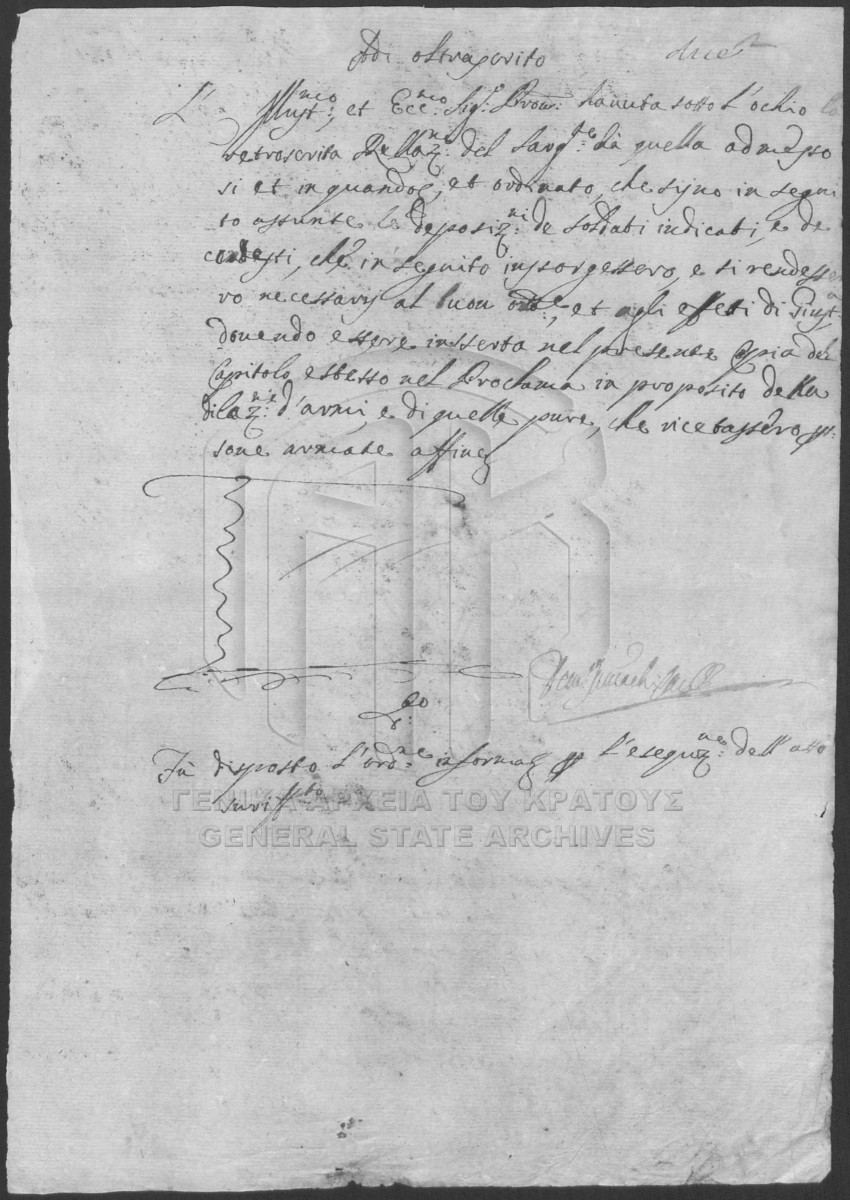 Adi oltrascrito
L' Illust:mo, et Ecc:mo Sig:r Prove: havuta sotto l'ochio la
retroscrita Rellaz:ne del Sarg:te da quella admesso
si et in quando &, et ordinato, che sijno in segui
to assunte le deposiz:ni de soldati indicati, e de
contesti, che in seguito inssorgessero, e si rendesse
ro necessarij al buon ord:e, et agli effetti di Giust:a
dovendo essere insserta nel presente Copia del
Capitolo estesso nel Proclama in proposito della
dilaz:ne d'armi, e di quelle pure, che ricetassero per
sone armate affine
Fù disposto l'ord:ne in forma per l'esequz:ne dell'atto
suriff:to
ΓΕΝΙΚΑ ΑΡΧΕΙΑ ΤΟΥ ΚΡΑΤΟΥΣ
GENERAL STATE ARCHIVES